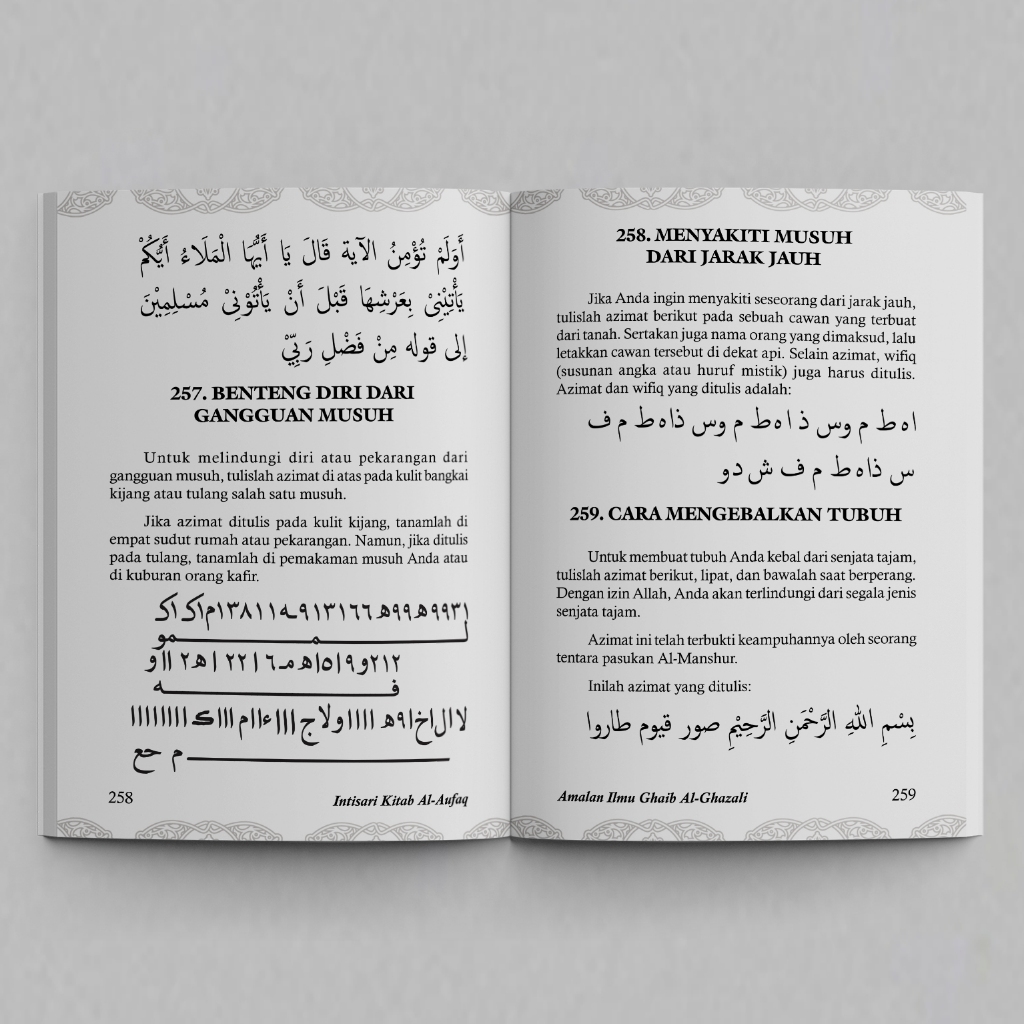 أَوَلَمْ تُؤْمِنُ الآية قَالَ يَا أَيُّهَا الْمَلَاءُ أَيُّكُمْ
يَأْتِيْنِيْ بِعَرْشِهَا قَبْلَ أَنْ يَأْتُوْنِيْ مُسْلِمِيْنَ
إلى قوله مِنْ فَضْلِ رَبِّيْ
257. BENTENG DIRI DARI
GANGGUAN MUSUH
Untuk melindungi diri atau pekarangan dari
gangguan musuh, tulislah azimat di atas pada kulit bangkai
kijang atau tulang salah satu musuh.
Jika azimat ditulis pada kulit kijang, tanamlah di
empat sudut rumah atau pekarangan. Namun, jika ditulis
pada tulang, tanamlah di pemakaman musuh Anda atau
di kuburan orang kafir.
م حع
258
Intisari Kitab Al-Aufaq
258. MENYAKITI MUSUH
DARI JARAK JAUH
Jika Anda ingin menyakiti seseorang dari jarak jauh,
tulislah azimat berikut pada sebuah cawan yang terbuat
dari tanah. Sertakan juga nama orang yang dimaksud, lalu
letakkan cawan tersebut di dekat api. Selain azimat, wifiq
(susunan angka atau huruf mistik) juga harus ditulis.
Azimat dan wifiq yang ditulis adalah:
اه ط م وس ذ اه ط م وس ذاه ط م ف
س ذاه ط م ف ش دو
259. CARA MENGEBALKAN TUBUH
Untuk membuat tubuh Anda kebal dari senjata tajam,
tulislah azimat berikut, lipat, dan bawalah saat berperang.
Dengan izin Allah, Anda akan terlindungi dari segala jenis
senjata tajam.
Azimat ini telah terbukti keampuhannya oleh seorang
tentara pasukan Al-Manshur.
Inilah azimat yang ditulis:
بِسْمِ اللهِ الرَّحْمَنِ الرَّحِيْمِ صور قيوم طاروا
Amalan Ilmu Ghaib Al-Ghazali
259